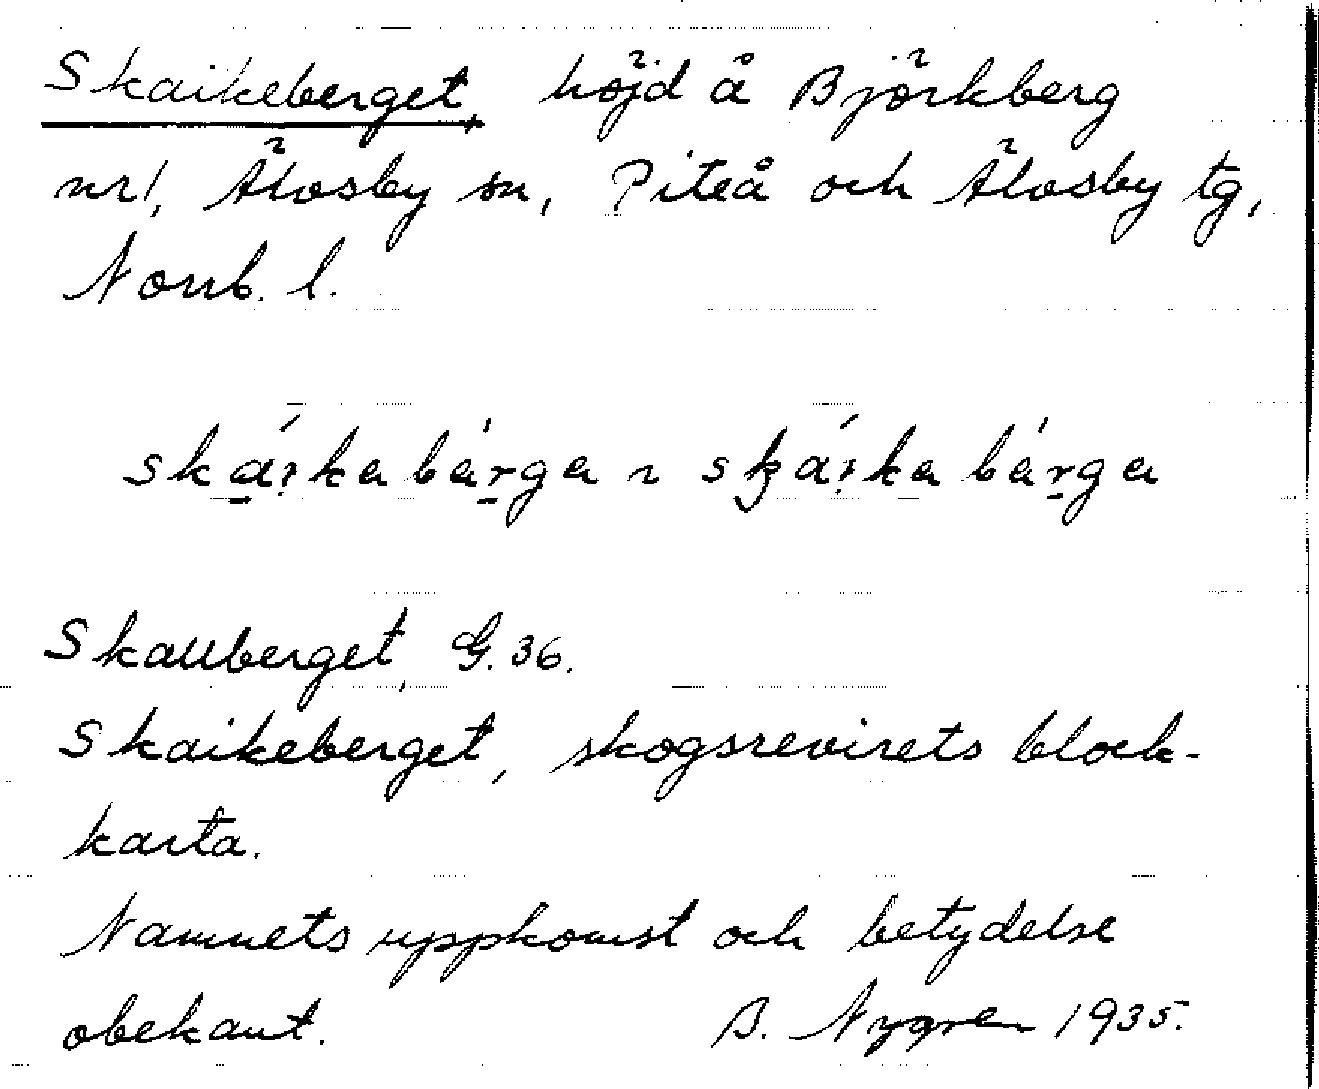 Skaikeberget, höjd å Björkberg
nr 1, Älvsby sn, Piteå och Älvsby tg,
Norrb. l.
Skallberget, G. 36.
Skaikeberget, skogsrevirets block-
karta.
Namnets uppkomst och betydelse
obekant. B. Nygren 1935.